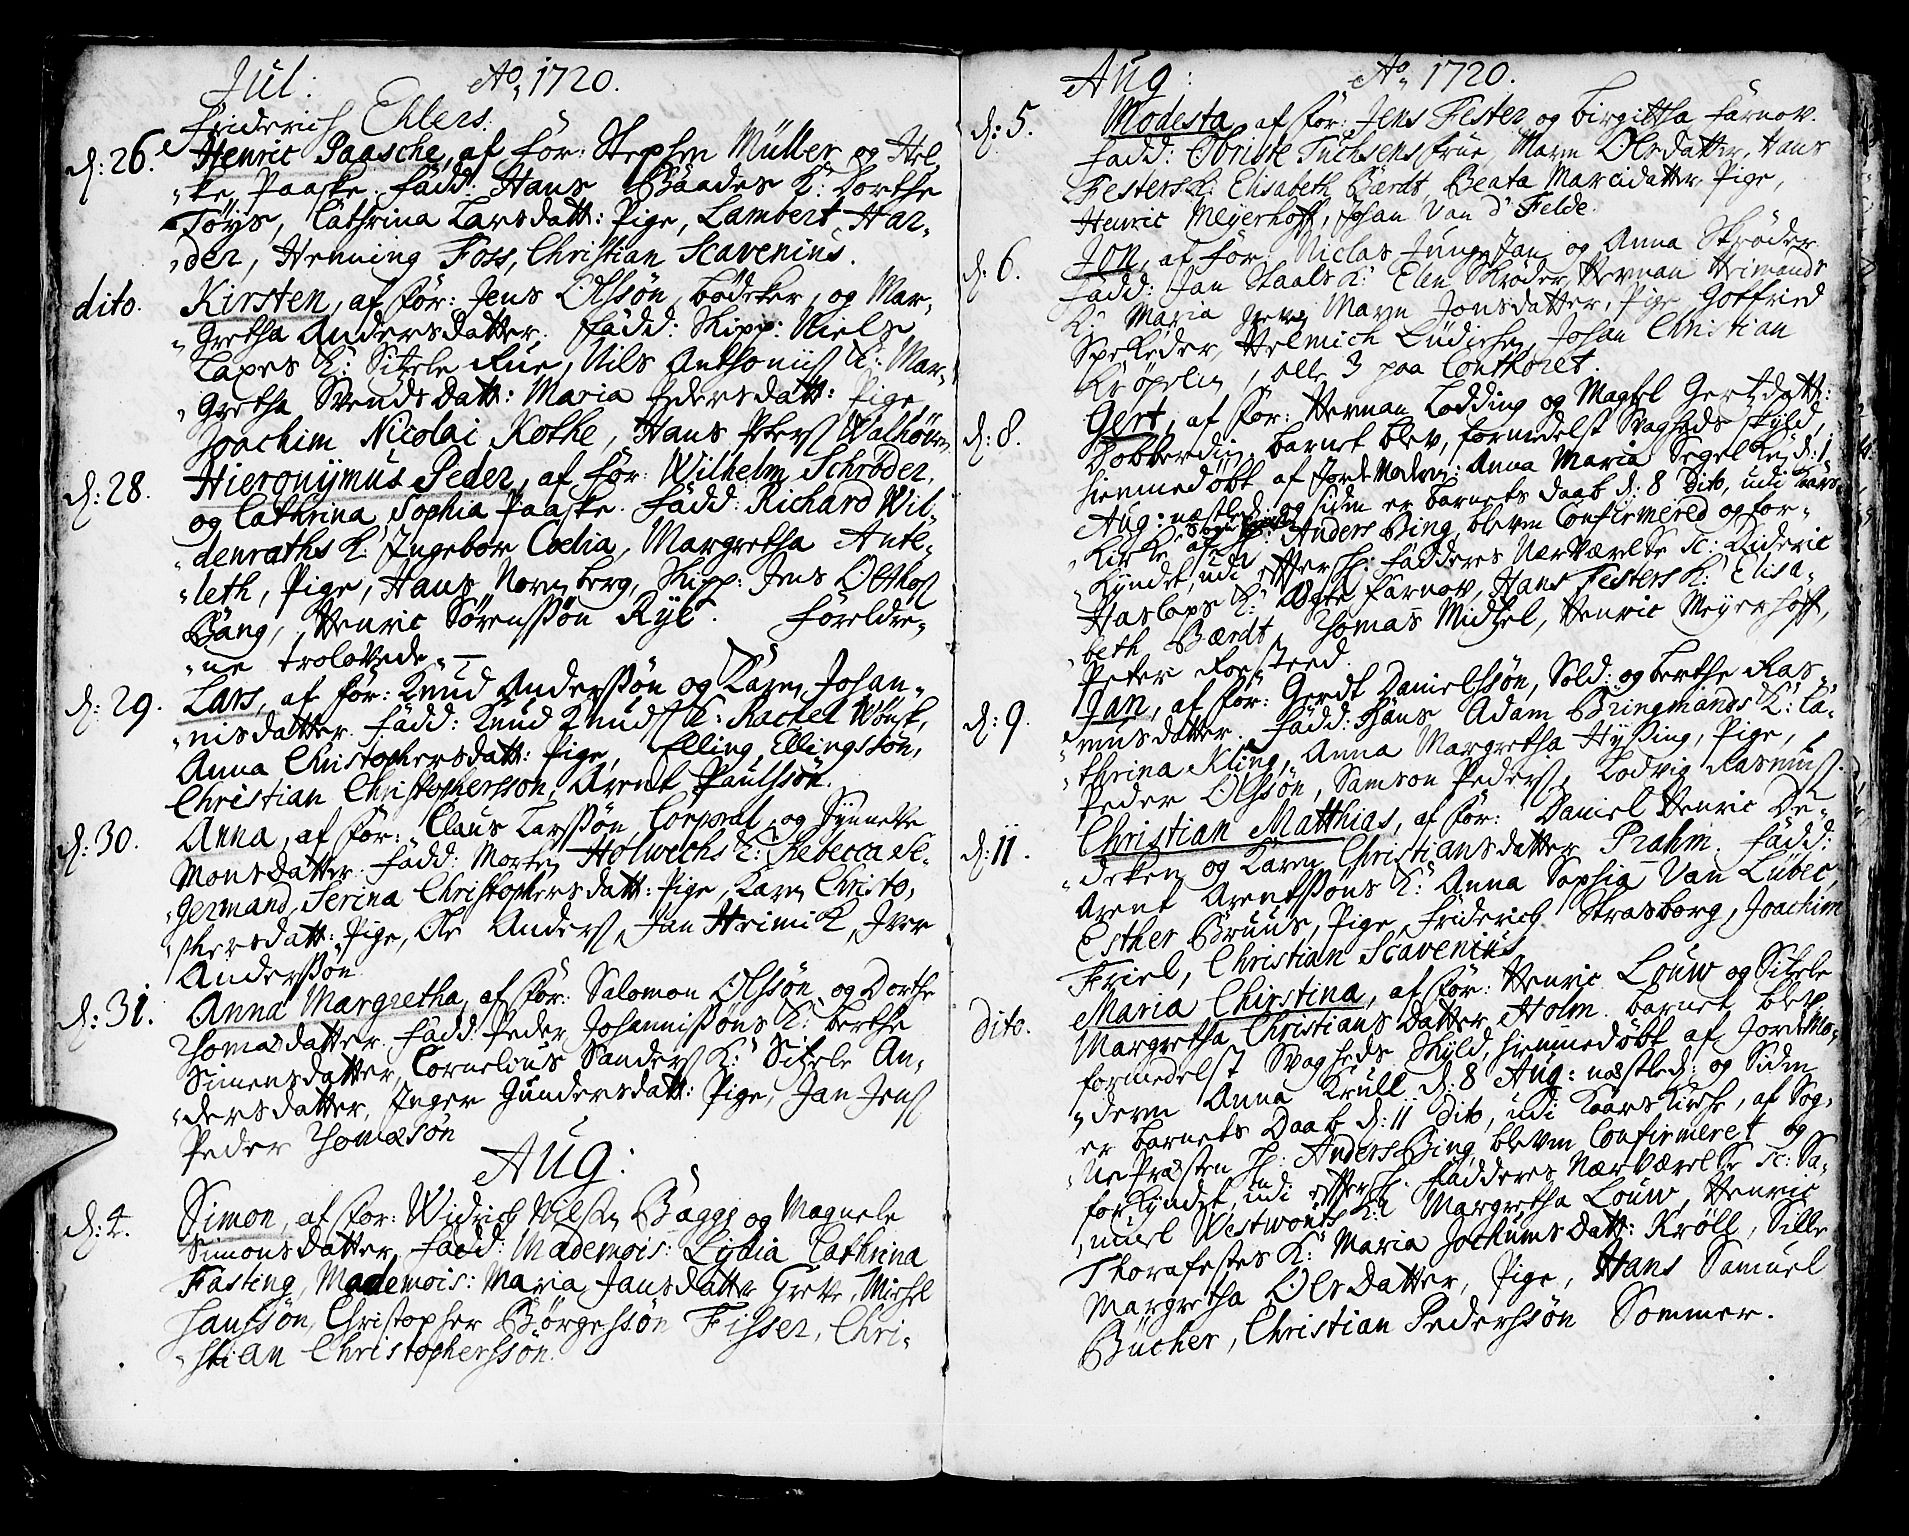 Jul: Ao 1720.
Friderich Ehlers.
d: 26. Henric Paasche, af For: Stephen Müller og Hel-
ke Paaske. Fadd: Hans Baades K: Dorthe
Töijs, Cathrina Larsdatt: Pige, Lambert Har-
der, Henning Foss, Christian Scavenius.
dito. Kirsten, af For: Jens Olssön, Bödeker, og Mar-
gretha Andersdatter. Fadd: Skipp: Niels
Lapes K: Sitzele Rue, Nils Anthonij K: Mar-
gretha Svendsdatt: Maria Pedersdatt: Pige,
Joachim Nicolai Kothe, Hans Peters Walhörn
d: 28. Hieronijmus Peder, af For: Wilhelm Schröder,
og Cathrina Sophia Paaske. Fadd: Richard Wil-
denraths K: Ingebor Coelia, Margretha Ante-
leth, Pige, Hans Nornberg, Skipp: Jens Olthof
Bang, Henric Sörenssön Rijl. Foreldre-
ne trolovede.
d: 29. Lars, af For: Knud Anderssön og Karen Johan-
nisdatter. Fadd: Knud Knuds K: Rachel Wönsk,
Anna Christophersdatt: Pige, Elling Ellingssön,
Christian Christopherssön, Arent Paulssön.
d: 30. Anna, af For: Claus Larssön, Corporal, og Synneve
Monsdatter. Fadd: Morten Holwechs K: Rebecca Te-
germand, Serina Christophersdatt: Pige, Karen Christo-
phersdatt: Pige, Ole Anders, Jan Heimik, Iver
Anderssön.
d: 31. Anna Margretha, af For: Salomon Olssön, og Dorthe
Thomasdatter. Fadd: Peder Johannissöns K: Berthe
Simensdatter, Cornelius Sanders K: Sitzele An-
dersdatter, Inger Gundersdatt: Pige, Jan Jens
Peder Thomæsön
Aug:
d: 4. Simon, af For: Widrich Nilsen Bagge og Magnele
Simonsdatter. Fadd: Mademois: Lydia Cathrina
Fasting, Mademois: Maria Jansdatter Greve, Michel
Hanssön, Christopher Börgessön Fisser, Chri-
stian Christopherssön.
Aug: Ao 1720.
d: 5. Modesta, af For: Jens Fester og Birgitha Farnov.
Fadd: Obriste Fuchsens Frue, Maren Olesdatter, Hans
Festers K: Elisabeth Bærdt, Beata Marcidatter, Pige,
Henric Meijerhoff, Johan Van d' Felde.
d: 6. Jon, af For: Niclas Jungejan og Anna Skröder
Fadd: Jan Staals K: Elen Skröder, Herman Heimands
K: Maria Maren Jonsdatter, Pige, Gotfried
Spekeder, Helmich Lüdichen, Johan Christian
Kröpelin, alle 3 paa Contheret.
d: 8. Gert, af For: Herman Lodding og Magtel Gertzdatt:
Dobberdin. Barnet blev, formedelst Svagheds skyld,
Hiemmedöbt af Jordemoderen: Anna Maria Segelke, d: 1
Aug: næstled: og siden er Barnets Daab d: 8 Dito, udi Kaars-
Kirke af Anders Bing, bleven Confirmered og for-
Kyndet, udi effterskr: Fadderes Nærværelse sc: Dideric
Haslops K: Agte Farnov, Hans Festers K: Elisa-
beth Bærdt, Thomas Midzel, Henric Meijerhoff,
Peter Forsteed.
d: 9. Jan, af For: Gerdt Danielssön, Sold: og Berthe Ras-
musdatter. Fadd: Hans Adam Bringmands K: Ca-
thrina Kling, Anna Margretha Hyssing, Pige,
Peder Olssön, Samson Peders, Lodvig Rasmus.
d: 11. Christian Matthias, af For: Daniel Henric De-
deken og Karen Christiansdatter Prahm. Fadd:
Arent Arentssöns K: Anna Sophia Van Lübec,
Esther Bruus, Pige, Friderich Strasborg, Joachim
Friel, Christian Scavenius.
Dito. Maria Chirstina, af For: Henric Louw og Sitzele
Margretha Christiansdatter Holm. Barnet blev
formedelst Svagheds skyld, hiemmedöbt af Jordemo-
deren Anna Krull d: 8 Aug: næstled: og siden
er Barnets Daab d: 11 Dito, udi Kaars Kirche, af Sog-
ne Præsten H: Anders Bing, bleven Confirmeret og
forkyndet, udi effterskr. Fadderes Nærværelse sc: Sa-
muel Westwouts K: Margretha Louw, Henric
Thorafestes K: Maria Jochumsdatt: Kröll, Sille
Margretha Olesdatter, Pige, Hans Samuel
Bücher, Christian Pederssön Sommer.